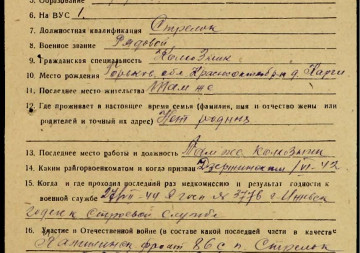 6. На ВУС 1.
7. Должностная квалификация Стрелок
8. Военное звание Рядовой
9. Гражданская специальность Колхозник
10. Место рождения Горьков. обл. Краснооктябр. д.
11. Последнее место-жительства Там же
12. Где проживает в настоящее время семья (фамилия, имя и отчество жены или
родителей и точный их адрес) Нет родных
13. Последнее место работы и должность Там же колхозник
14. Каким райгорвоенкоматом и когда призван Дзержинским /VI-42
15. Когда и где проходил последний раз медкомиссию и результат годности к
военной службе 44 госп № 3776 г. Ижевск
годен к строевой службе
16. Участие в Отечественной войне (на какой фронте в последней части и в качестве
фронт 865 п. Стрелок